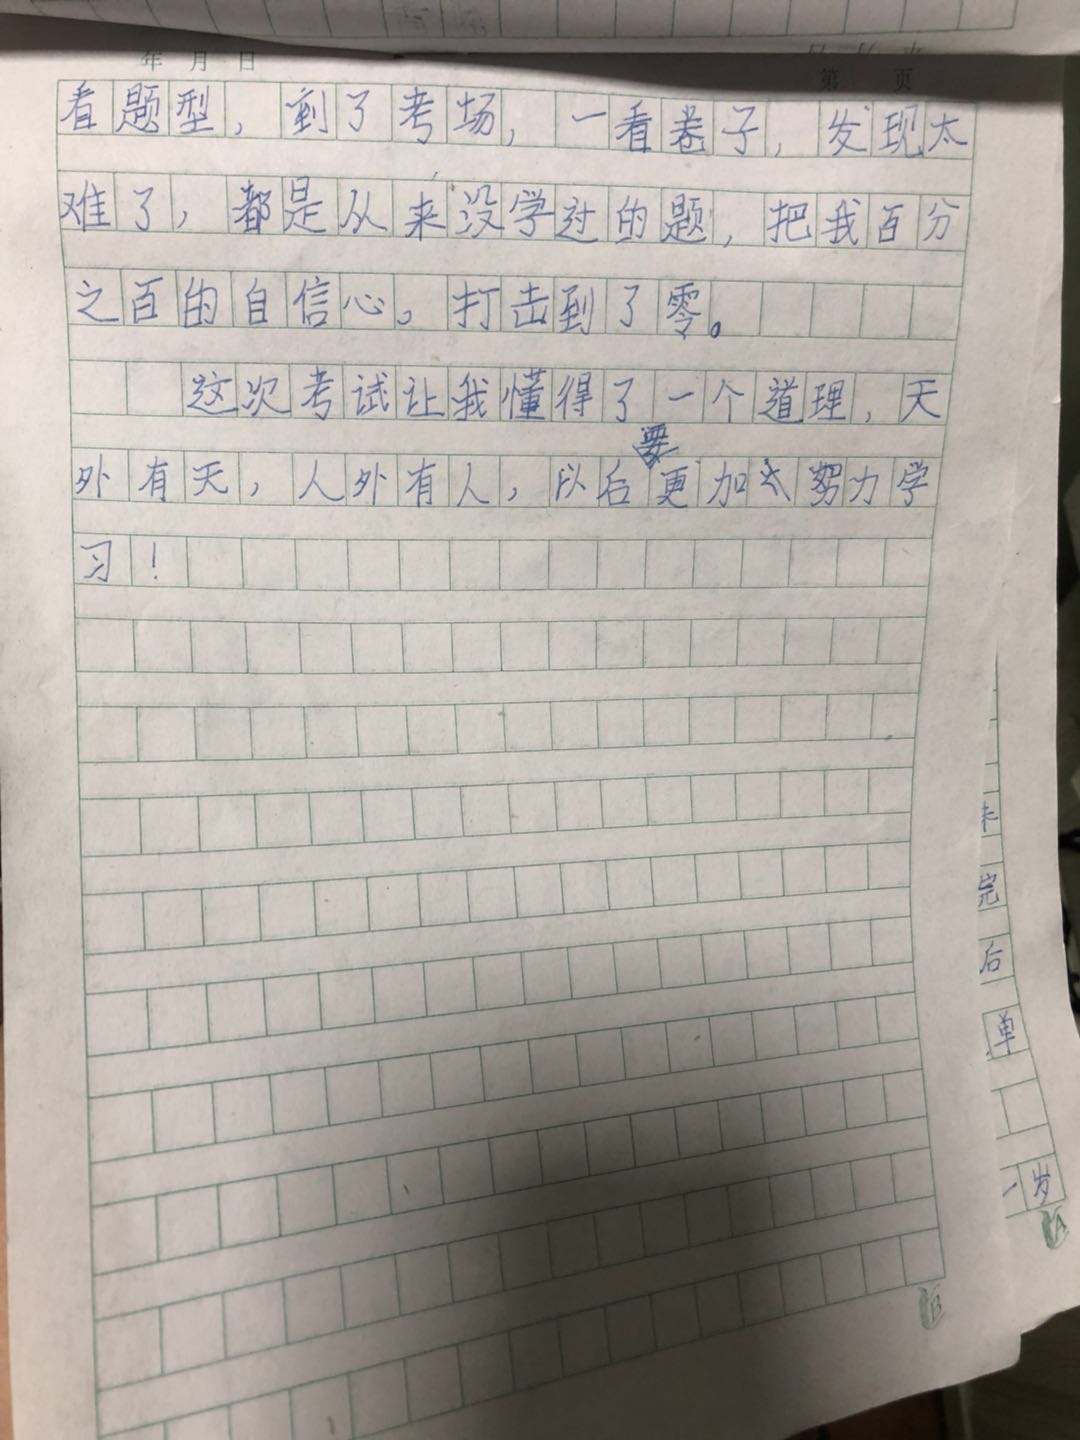 年 月 日
第 页
看题型，到了考场，一看卷子，发现太
难了，都是从来没学过的题，把我百分
之百的自信心。打击到了零。
这次考试让我懂得了一个道理，天
外有天，人外有人，以后要更加努力学
习！
来
完
后
单
一岁
A
B